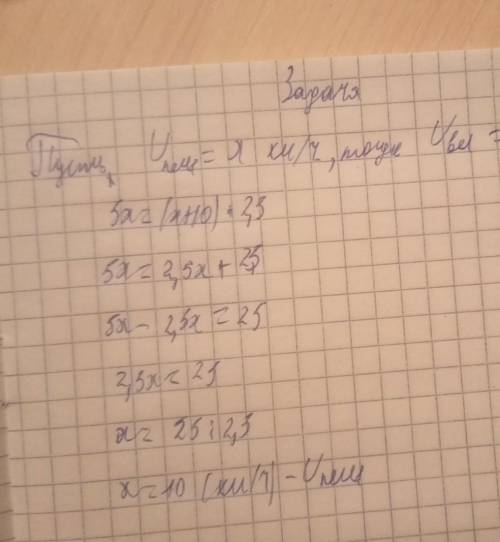 Задача
Пусть, Vпеш = x км/ч, тогда Vвел =
5x = (x+10) · 2,5
5x = 2,5x + 25
5x - 2,5x = 25
2,5x = 25
x = 25 : 2,5
x = 10 (км/ч) - Vпеш